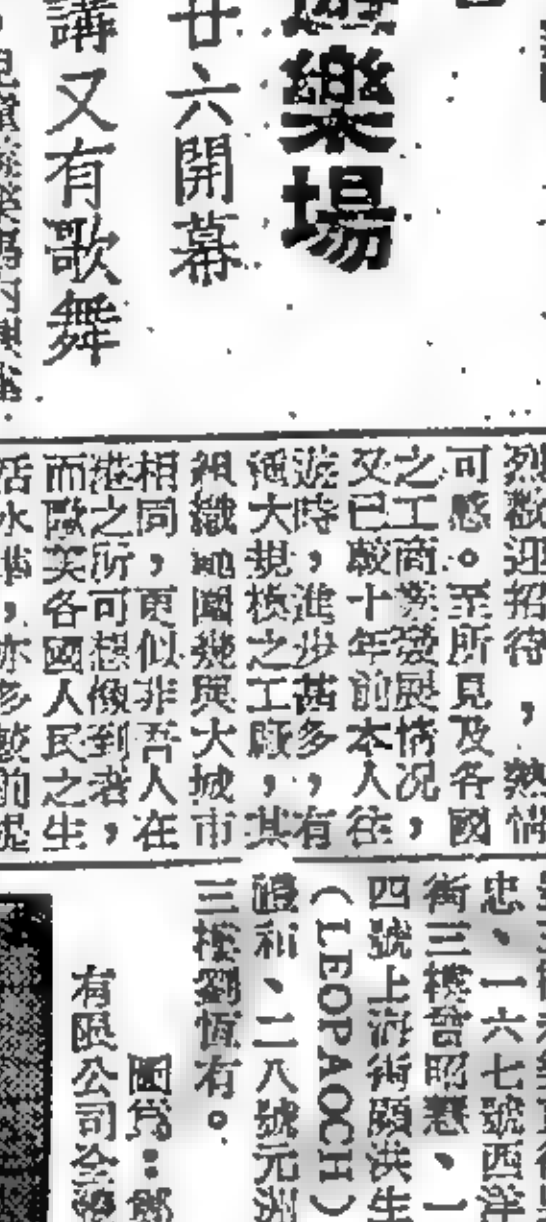 樂場
廿六開幕
講又有歌舞
烈歡迎招待，熱情
可感。至所見及各國
之工商業發展情况，
又已較十年前本人往
遊時，進步甚多，有
大規模之工廠，其
組織範圍幾與大城市
相同，更似非吾人在
港之所可想像到者，
而歐美各國人民之生
活水準，亦多較前提
忠、一六七號西洋
街三樓曾昭慧、一
四號上海街顧洪生
（LEOPAOCH）
禮和、二八號元洲
三樓劉恆有。
圖為：鄧
有限公司